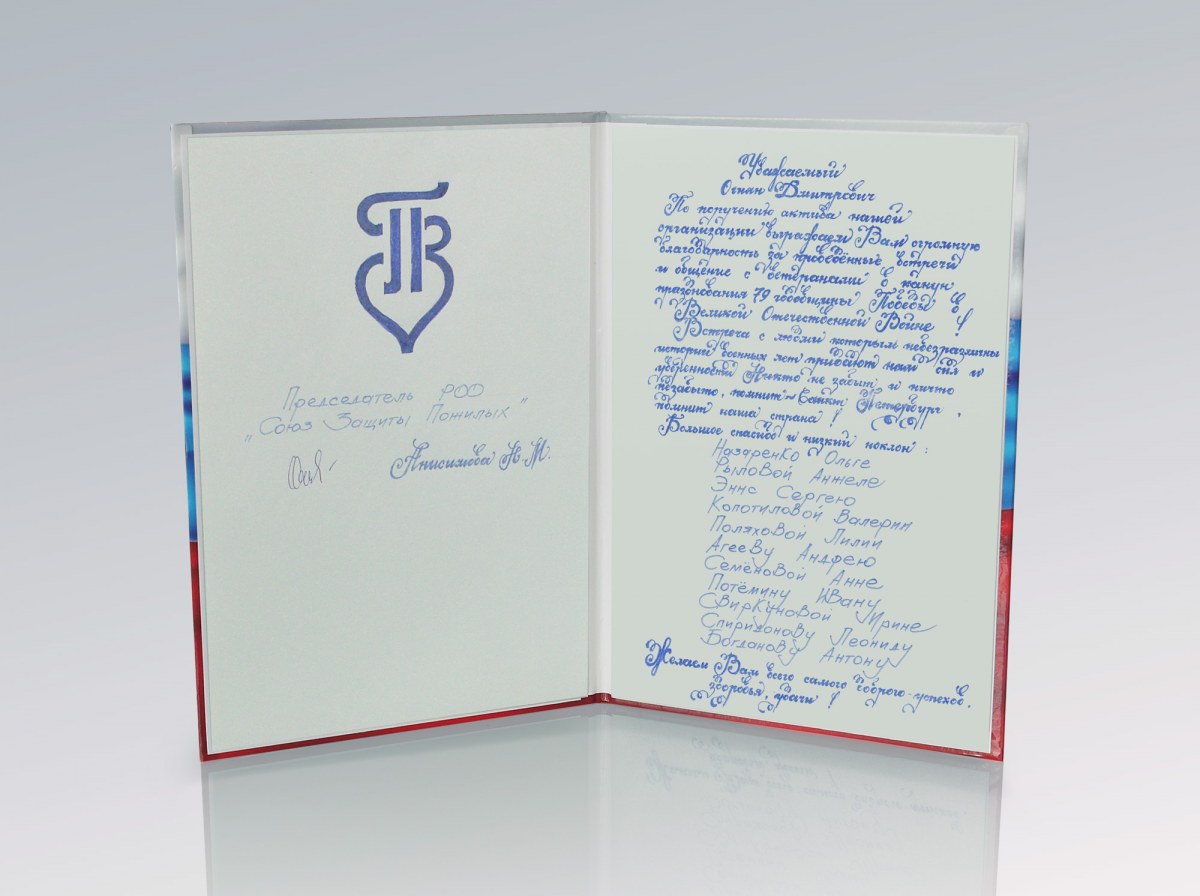 Председатель РОО
„Союз Защиты Пожилых"
Анисимова Н.М.
Уважаемый
Огнян Дмитрович
По поручению актива нашей
организации выражаем Вам огромную
благодарность за проведённые встречи
и общение с ветеранами в канун
празднования 79 годовщины Победы в
Великой Отечественной Войне!
Встреча с людьми которым небезразличны
истории военных лет придают нам сил и
уверенности Никто не забыт и ничто
позабыто, помнит ~ Санкт Петербург,
помнит наша страна!
Большое спасибо и низкий поклон:
Назаренко Ольге
Рыловой Анжеле
Эннс Сергею
Копотиловой Валерии
Поляховой Лилии
Агееву Андрею
Семёновой Анне
Потёмину Ивану
Свиркуновой Ирине
Спиридонову Леониду
Богданову Антону
Желаем Вам всего самого доброго-успехов,
здоровья, удачи!